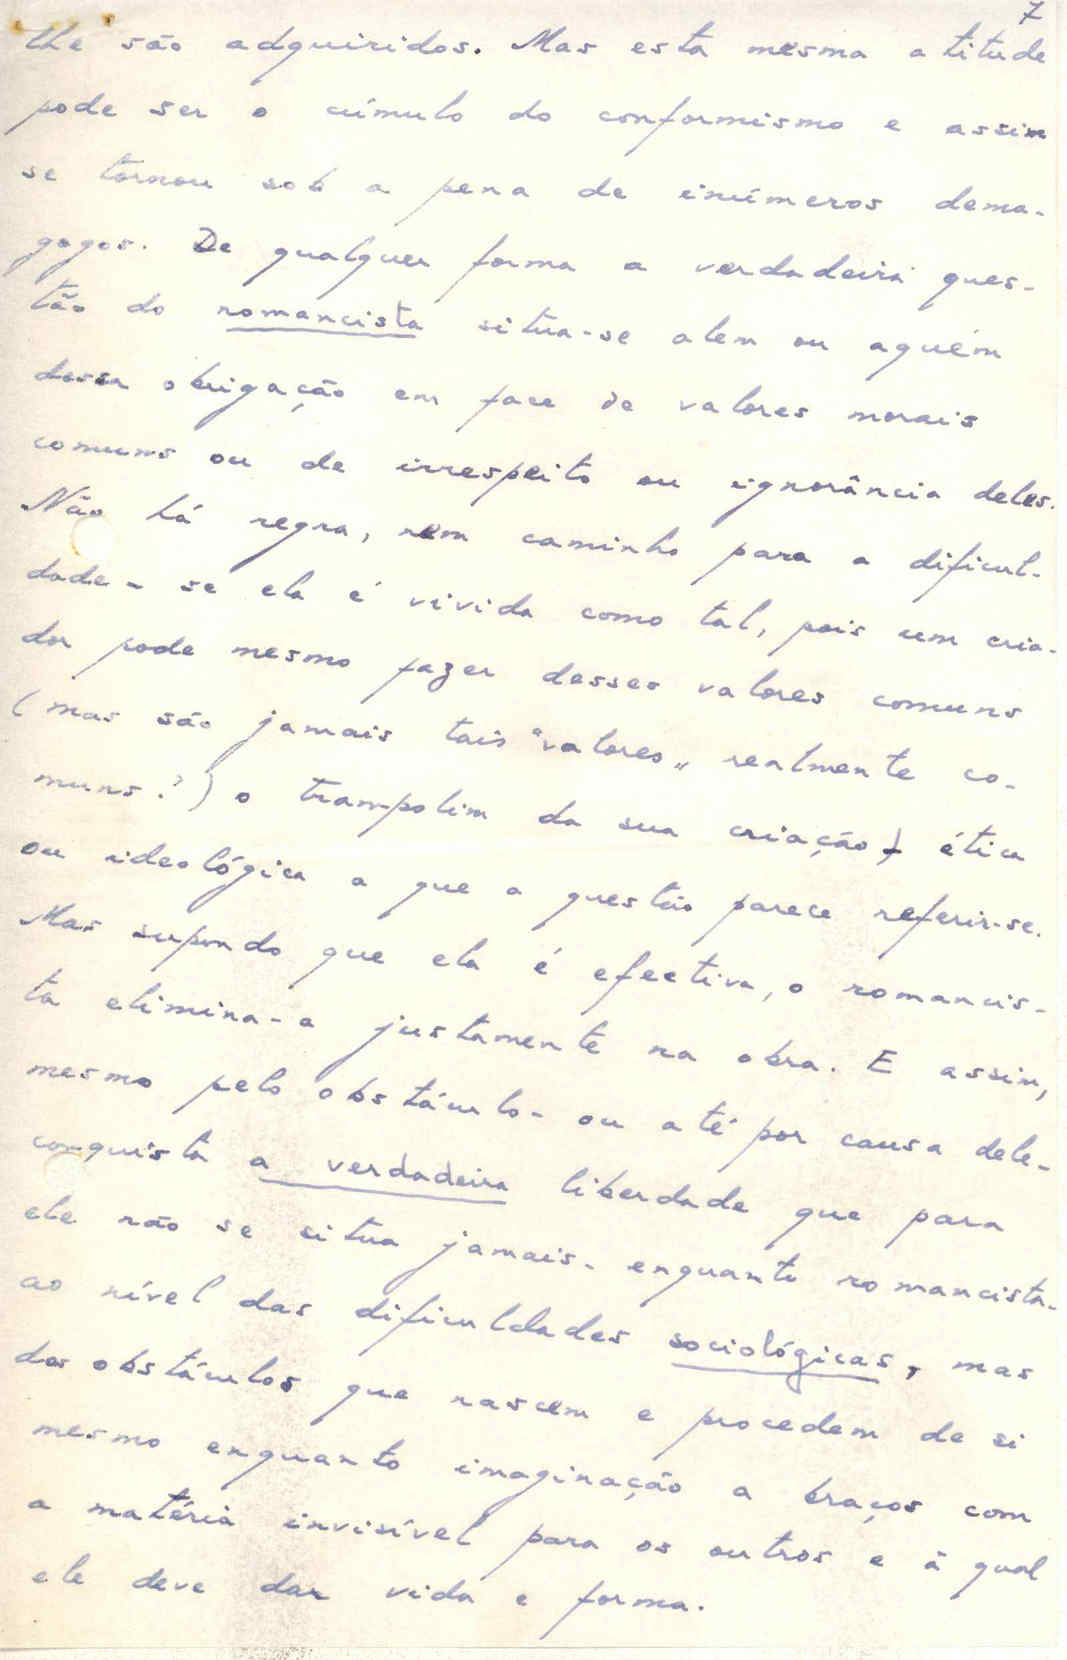 7
lhe são adquiridos. Mas esta mesma atitude
pode ser o cúmulo do conformismo e assim
se tornou sob a pena de inúmeros dema-
gogos. De qualquer forma a verdadeira ques-
tão do romancista situa-se alem ou aquém
dessa obrigação em face de valores morais
comuns ou de irrespeito ou ignorância deles.
Não há regra, nem caminho para a dificul-
dade - se ela é vivida como tal, pois um cria-
dor pode mesmo fazer desses valores comuns
(mas são jamais tais "valores" realmente co-
muns?) o trampolim da sua criação, ética
ou ideológica a que a questão parece referir-se.
Mas supondo que ela é efectiva, o romancis-
ta elimina-a justamente na obra. E assim,
mesmo pelo obstáculo - ou até por causa dele -
conquista a verdadeira liberdade que para
ele não se situa jamais - enquanto romancista -
ao nível das dificuldades sociológicas, mas
dos obstáculos que nascem e procedem de si
mesmo enquanto imaginação a braços com
a matéria invisível para os outros e à qual
ele deve dar vida e forma.